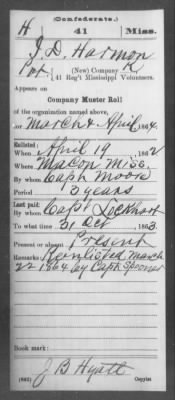 (Confederate.)
H 41 Miss.
J. D. Harmon
Pvt. (New) Company K
41 Reg't Mississippi Volunteers.
Appears on
Company Muster Roll
of the organization named above,
for March & April, 1864.
Enlisted:
When April 19, 1862
Where Macon Miss.
By whom Capt Moore
Period 3 years
Last paid:
By whom Capt Lockhart
To what time 31 Oct, 1863.
Present or absent Present
Remarks: Reenlisted March
22 1864 by Capt Spooner
Book mark:
J B Hyatt
(642) Copyist.